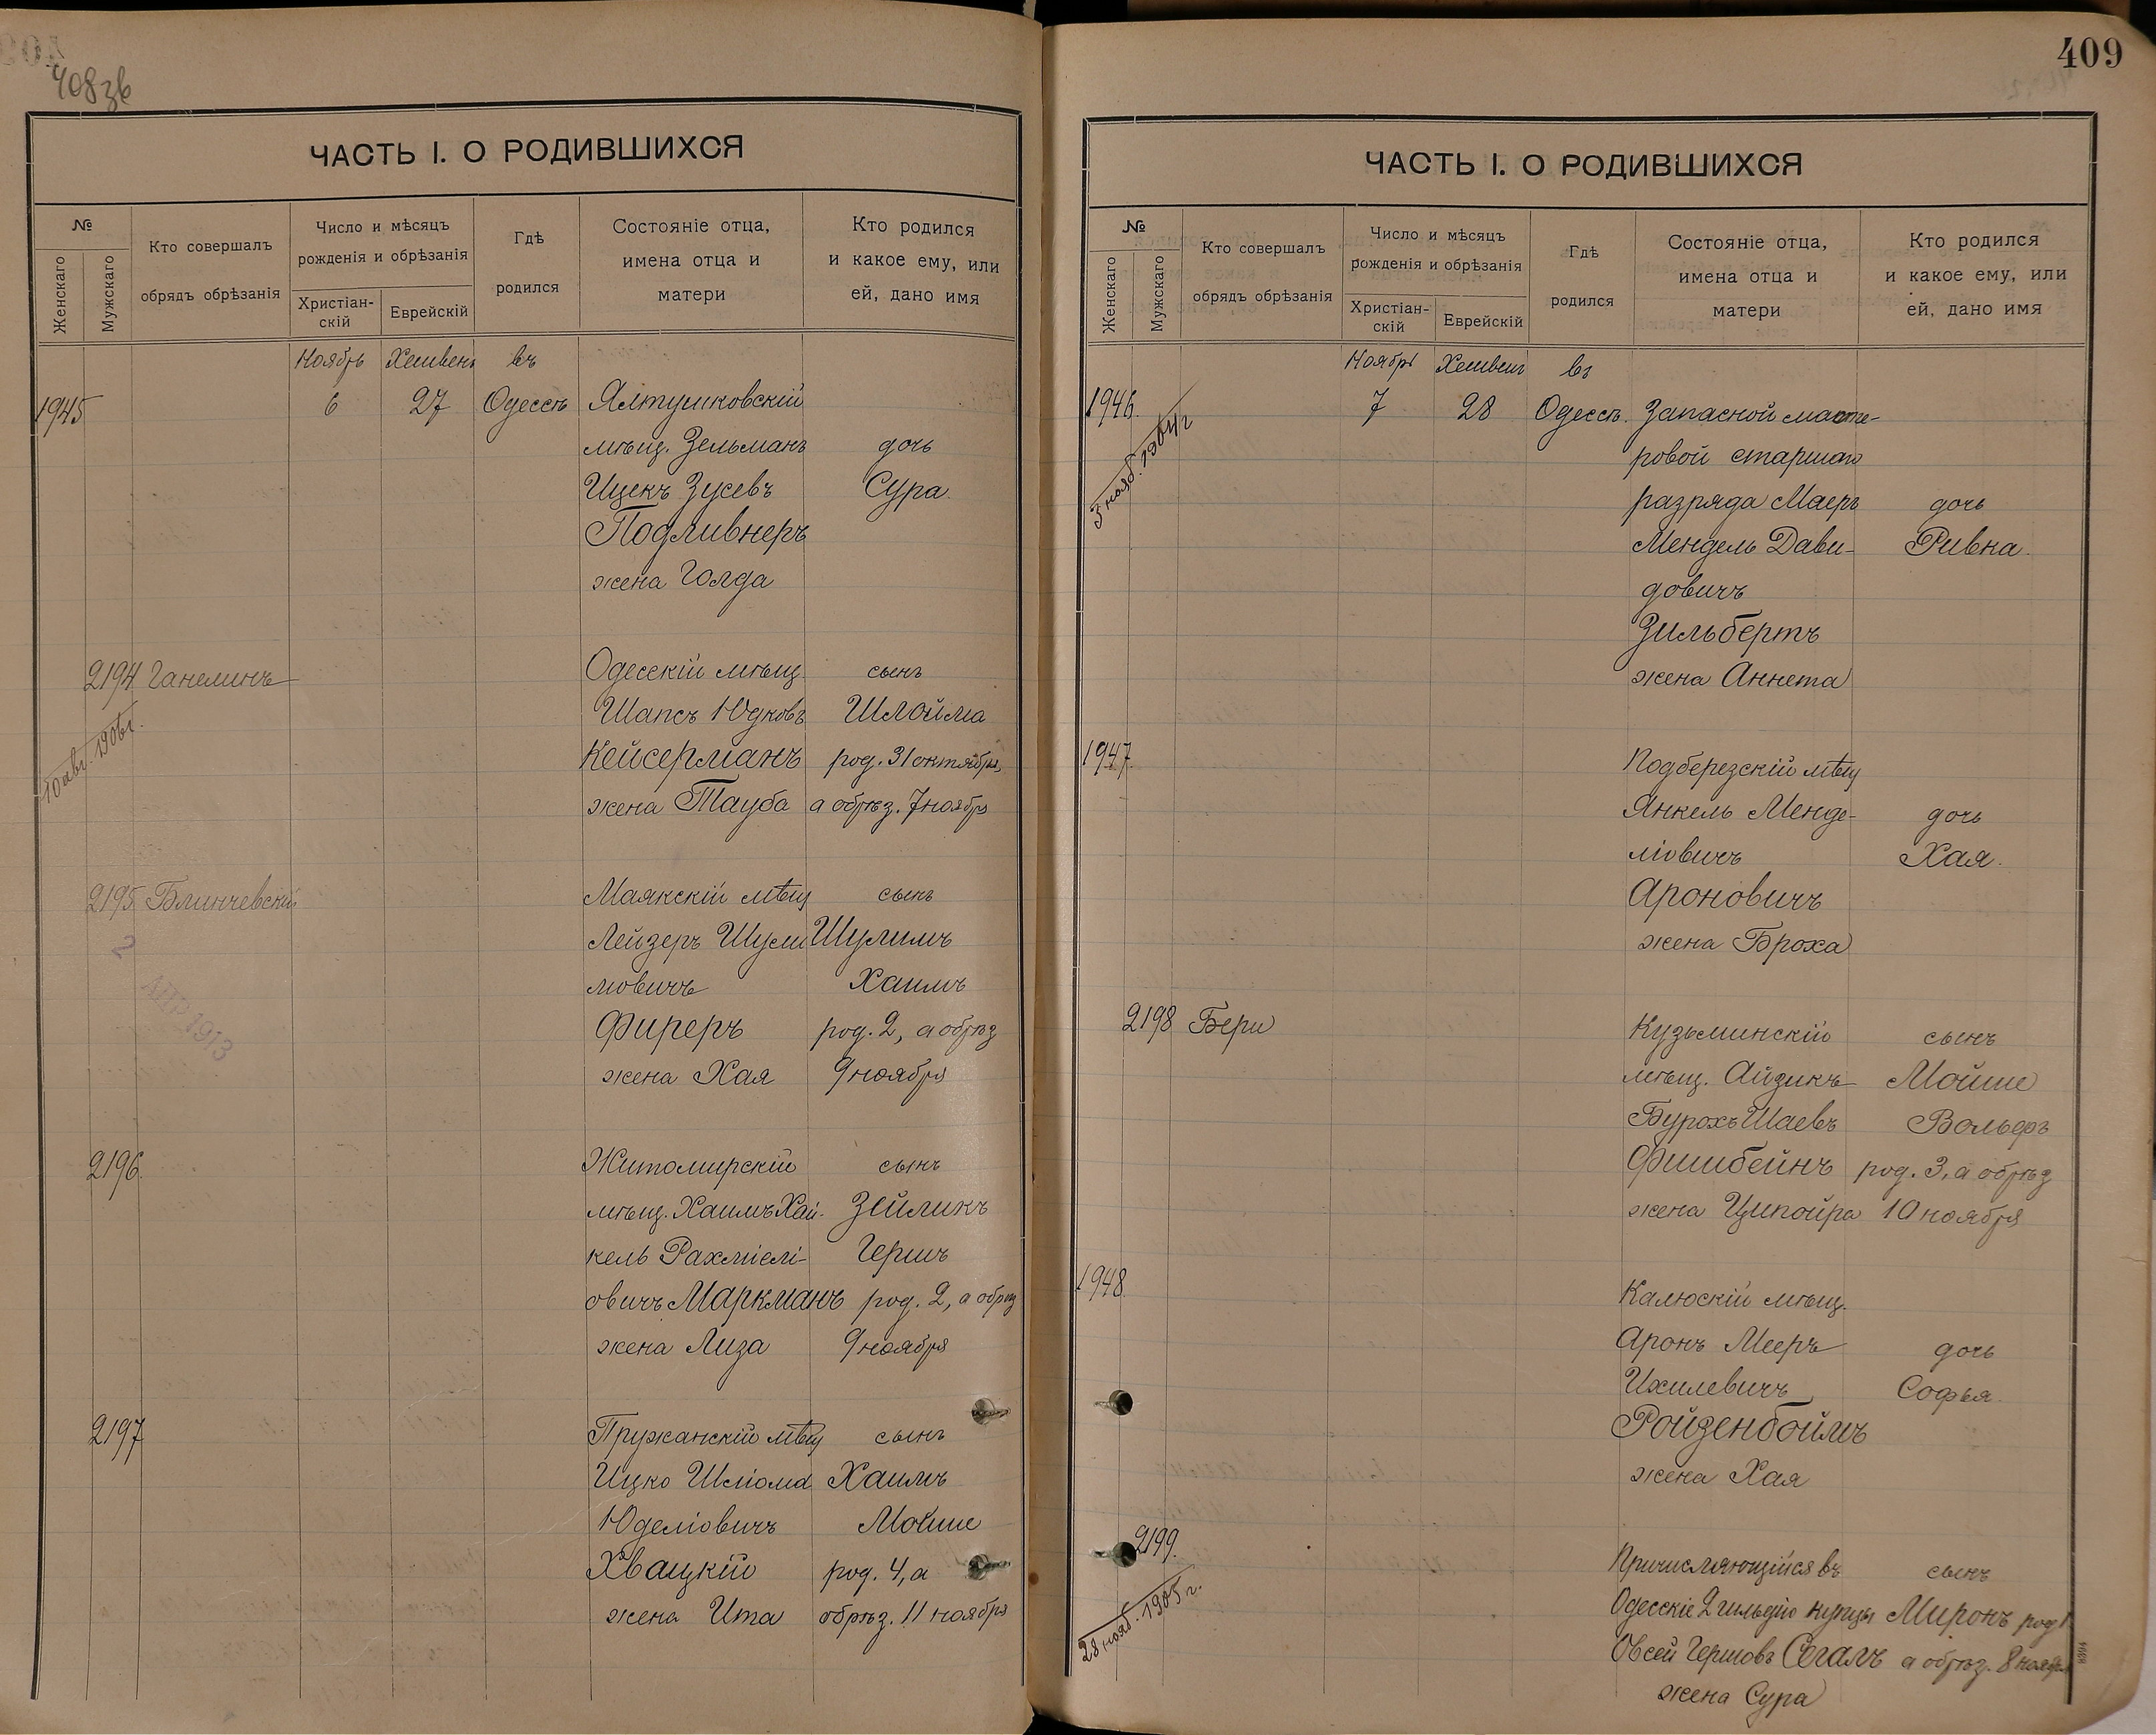 408зв
ЧАСТЬ I. О РОДИВШИХСЯ
№
Женскаго
Мужскаго
Кто совершалъ
обрядъ обрѣзанія
Число и мѣсяцъ
рожденія и обрѣзанія
Христіан-
скій
Еврейскій
Гдѣ
родился
Состояніе отца,
имена отца и
матери
Кто родился
и какое ему, или
ей, дано имя
Ноябрь Хешвенъ въ
1945 6 27 Одессѣ Ялтушковскій
мѣщ. Зельманъ дочь
Ицекъ Зусевъ Сура.
Подливнеръ
жена Голда
2194 Ганелинъ Одесскій мѣщ. сынъ
Шапсъ Юдковъ Шлойма
10 авг. 1906 г.
Кейсерманъ род. 31 октября,
жена Тауба а обрѣз. 7 ноября
2195 Блинчевскій Маякскій мѣщ сынъ
Лейзеръ Шули Шулимъ
мовичъ Хаимъ
2 АПР 1913
Фиреръ род. 2, а обрѣз
жена Хая 9 ноября
2196. Житомирскій сынъ
мѣщ. Хаимъ Хай- Зейликъ
кель Рахміелі- Гершъ
овичъ Маркманъ род. 2, а обрѣз
жена Лиза 9 ноября
2197 Пружанскій мѣщ сынъ
Ицко Шліома Хаимъ
Юделіовичъ Мойше
Хвацкій род. 4, а
жена Ита обрѣз. 11 ноября
409
ЧАСТЬ I. О РОДИВШИХСЯ
№
Женскаго
Мужскаго
Кто совершалъ
обрядъ обрѣзанія
Число и мѣсяцъ
рожденія и обрѣзанія
Христіан-
скій
Еврейскій
Гдѣ
родился
Состояніе отца,
имена отца и
матери
Кто родился
и какое ему, или
ей, дано имя
Ноябрь Хешвенъ въ
1946. 7 28 Одессѣ. Запасной масте-
3 нояб. 1904 г
ровой старшаго
разряда Маеръ дочь
Мендель Дави- Ривка.
довичъ
Зильбертъ
жена Аннета
1947. Подберезскій мѣщ
Янкель Менде- дочь
ліовичъ Хая.
Ароновичъ
жена Броха
2198 Бери Кузьминскій сынъ
мѣщ. Айзикъ Мойше
Бурохъ Шаевъ Вольфъ
Фишбейнъ род. 3, а обрѣз
жена Ципойра 10 ноября
1948. Калюскій мѣщ.
Аронъ Мееръ дочь
Ихилевичъ Софья.
Ройзенбоймъ
жена Хая
2199. Причисляющійся въ сынъ
28 нояб. 1905 г.
Одесскіе 2 гильдіи купцы Миронъ род 1
Овсей Гершовъ Сегалъ а обрѣз. 8 ноября
жена Сура